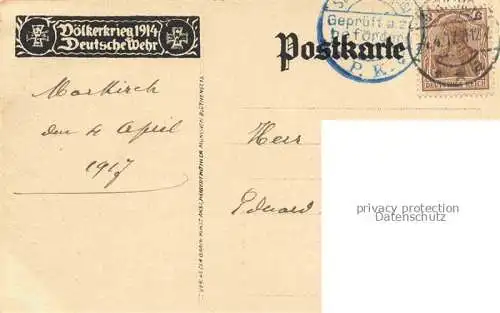 Völkerkrieg 1914
Deutsche Wehr
Geprüft u. zu
befördern
P. K.
Postkarte
DEUTSCHES REICH
Markirch
den 4 April
1917
Herr
Eduard
privacy protection
Datenschutz